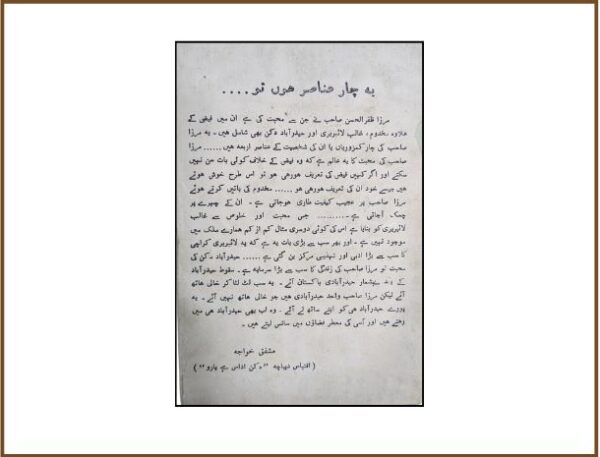 یہ چار عناصر ہوں تو ....
مرزا ظفرالحسن صاحب نے جن سے محبت کی ہے ان میں فیض کے
علاوہ مخدوم، غالب لائبریری اور حیدرآباد دکن بھی شامل ہیں۔ یہ مرزا
صاحب کی چار کمزوریاں یا ان کی شخصیت کے عناصر اربعہ ہیں ...... مرزا
صاحب کی محبت کا یہ عالم ہے کہ وہ فیض کے خلاف کوئی بات سن نہیں
سکتے اور اگر کہیں فیض کی تعریف ہورہی ہو تو اس طرح خوش ہوتے
ہیں جیسے خود ان کی تعریف ہورہی ہو ...... مخدوم کی باتیں کرتے ہوئے
مرزا صاحب پر عجیب کیفیت طاری ہوجاتی ہے۔ ان کے چہرے پر
چمک آجاتی ہے۔ ......... جس محبت اور خلوص سے غالب
لائبریری کو بنایا ہے اس کی کوئی دوسری مثال کم از کم ہمارے ملک میں
موجود نہیں ہے۔ اور پھر سب سے بڑی بات یہ ہے کہ یہ لائبریری کراچی
کا سب سے بڑا ادبی اور تہذیبی مرکز بن گئی ہے ...... حیدرآباد دکن کی
محبت تو مرزا صاحب کی زندگی کا سب سے بڑا سرمایہ ہے۔ سقوط حیدرآباد
کے بعد بےشمار حیدرآبادی پاکستان آئے۔ یہ سب لٹ لٹا کر خالی ہاتھ
آئے لیکن مرزا صاحب واحد حیدرآبادی ہیں جو خالی ہاتھ نہیں آئے۔ یہ
پورے حیدرآباد ہی کو اپنے ساتھ لے آئے۔ وہ اب بھی حیدرآباد ہی میں
رہتے ہیں اور اسی کی معطر فضاؤں میں سانس لیتے ہیں۔
مشفق خواجہ
(اقتباس دیباچہ "دکن اداس ہے یارو")